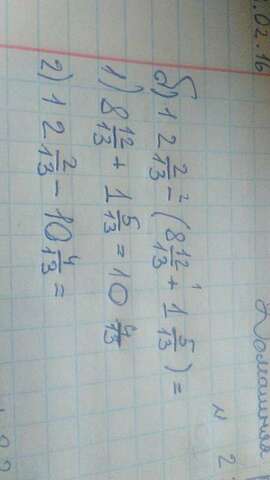 .02.16
Домашняя
№ 2
б) 12 2/13 -² (8 12/13 +¹ 1 5/13) =
1) 8 12/13 + 1 5/13 = 10 4/13
2) 12 2/13 - 10 4/13 =